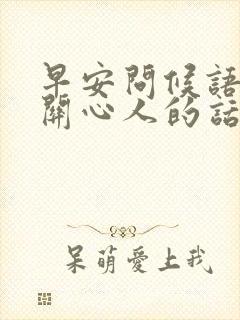 早安問候語
關心人的話
呆萌愛上我